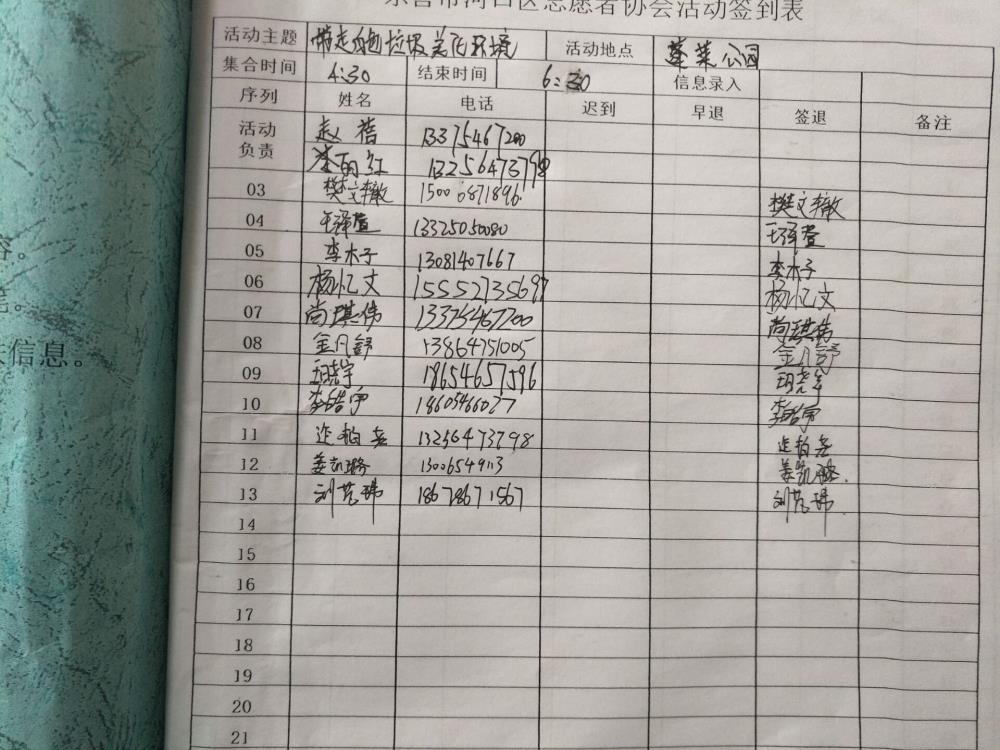 东营市河口区志愿者协会活动签到表
活动主题 带走 垃圾 美化环境 活动地点 蓬莱公园
集合时间 4:30 结束时间 6:30 信息录入
序列 姓名 电话 迟到 早退 签退 备注
活动负责 赵蓓 13375467200
李丽红 13256473798
03 樊文辙 15000871896 樊文辙
04 王泽萱 13325050080 王泽萱
05 李木子 13081407667 李木子
06 杨忆文 15552735697 杨忆文
07 尚琪伟 13375467200 尚琪伟
08 金凡舒 13864751005 金凡舒
09 王晓宇 18654657596 王晓宇
10 李皓宇 18605466027 李皓宇
11 延柏 13256473798 延柏
12 姜凯 13006549113 姜凯
13 刘 玮 18678671567 刘 玮
14
15
16
17
18
19
20
21
信息。